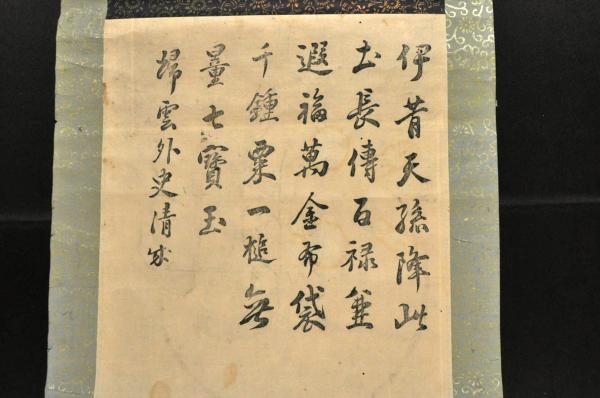 伊昔天孫降此
土長傳百禄並
遐福萬金布袋
千鍾粟一槌無
量七寳玉
掃雲外史清成